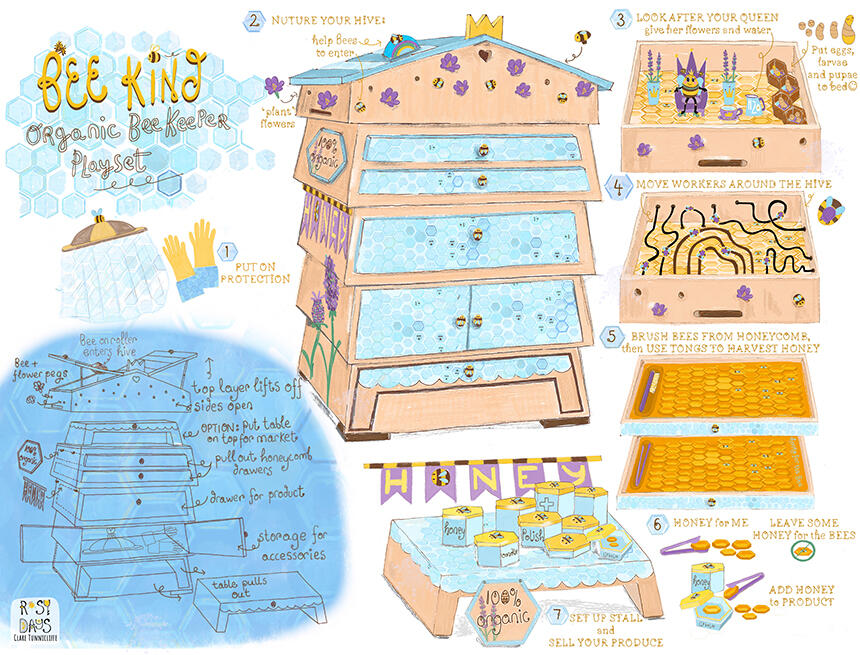 BEE KIND
Organic BeeKeeper
Playset
1
PUT ON
PROTECTION
2 NUTURE YOUR HIVE:
help Bees
to enter
'plant'
flowers
100%
organic
HONEY
3 LOOK AFTER YOUR QUEEN
give her flowers and water
Put eggs,
larvae
and pupae
to bed☺
4 MOVE WORKERS AROUND THE HIVE
5 BRUSH BEES FROM HONEYCOMB,
then USE TONGS TO HARVEST HONEY
6 HONEY for ME
LEAVE SOME
HONEY for the BEES
honey
ADD HONEY
to PRODUCT
7 SET UP STALL
and
SELL YOUR PRODUCE
HONEY
honey
Polish
100%
organic
Bee on roller
enters hive
Bee +
flower pegs
top layer lifts off
sides open
OPTION: put table
on top for market
pull out honeycomb
drawers
drawer for product
storage for
accessories
table pulls
out
100%
organic
HONEY
ROSY
DAYS
CLARE TUNNICLIFFE